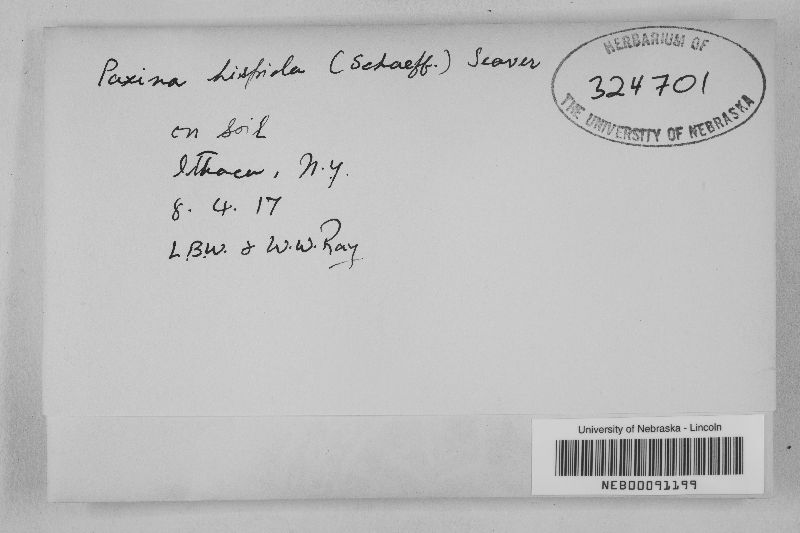 Paxina hispida (Schaeff.) Seaver
HERBARIUM OF
324701
THE UNIVERSITY OF NEBRASKA
on soil
Ithaca, N.Y.
8. 4. 17
L.B.W. & W.W. Ray
University of Nebraska - Lincoln
NEB00091199